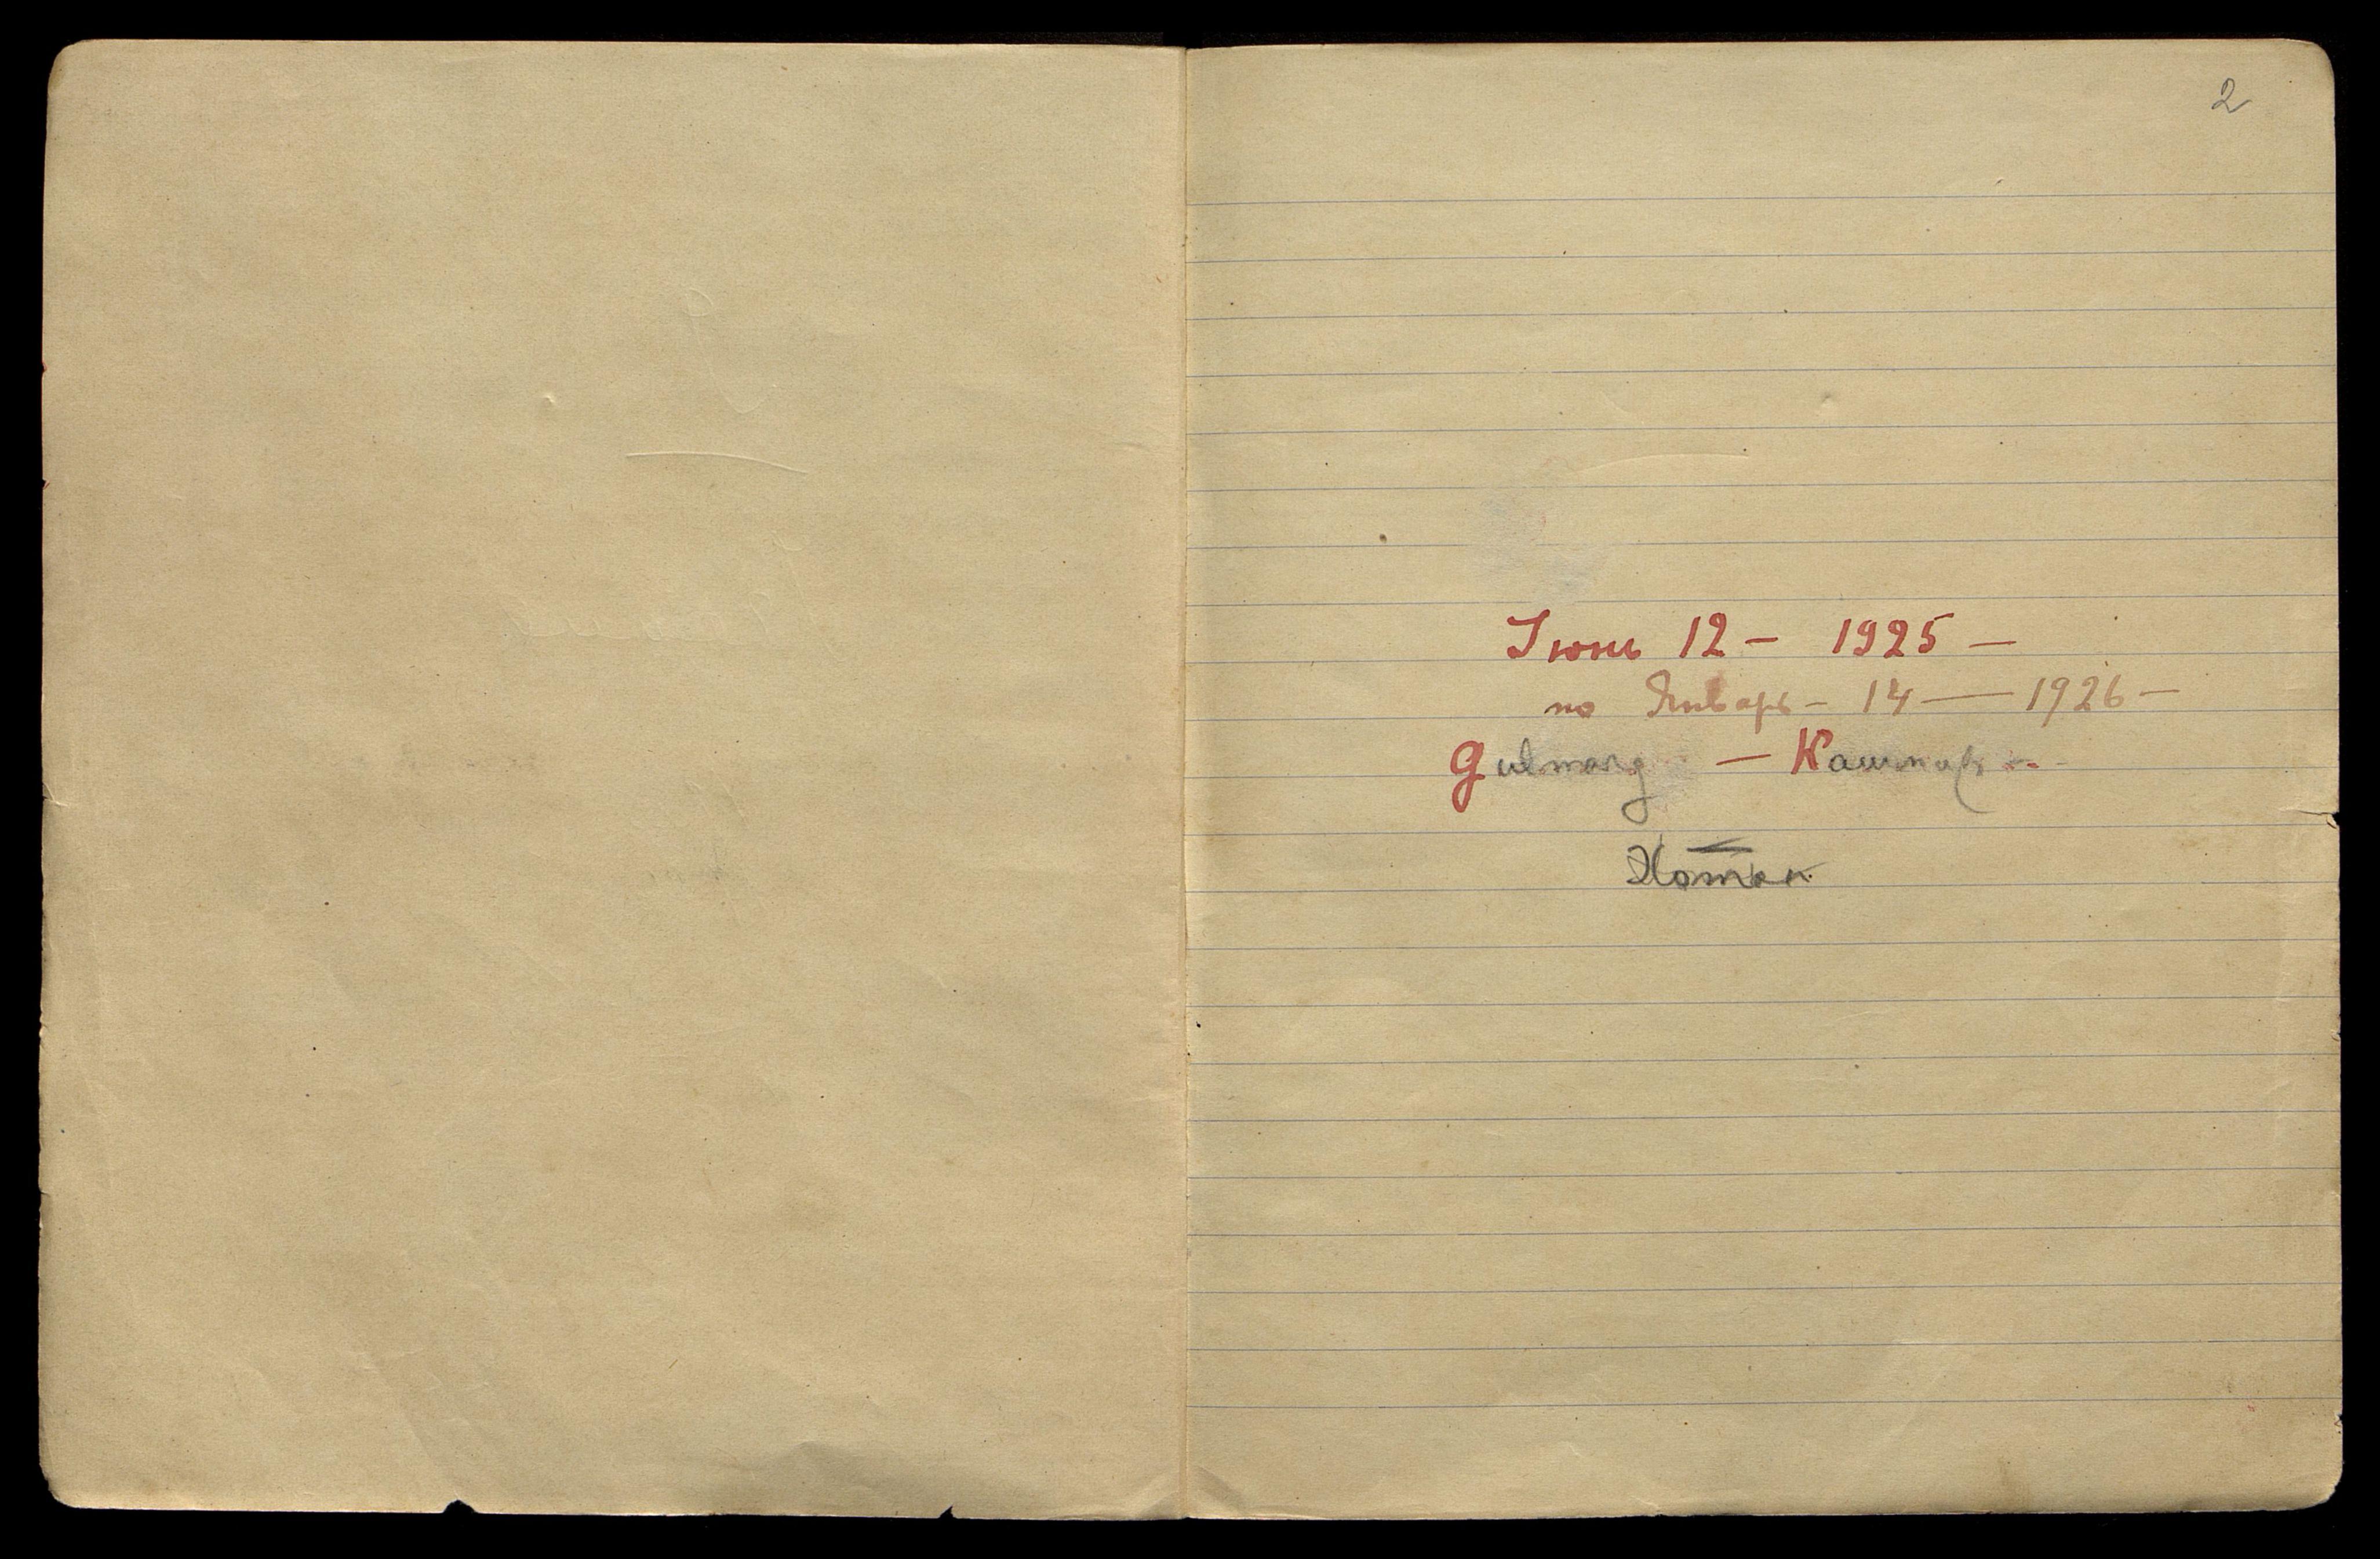 2
Iюнь 12 – 1925 –
по Январь – 14 — 1926 –
Gulmarg – Кашмир –
Хотан